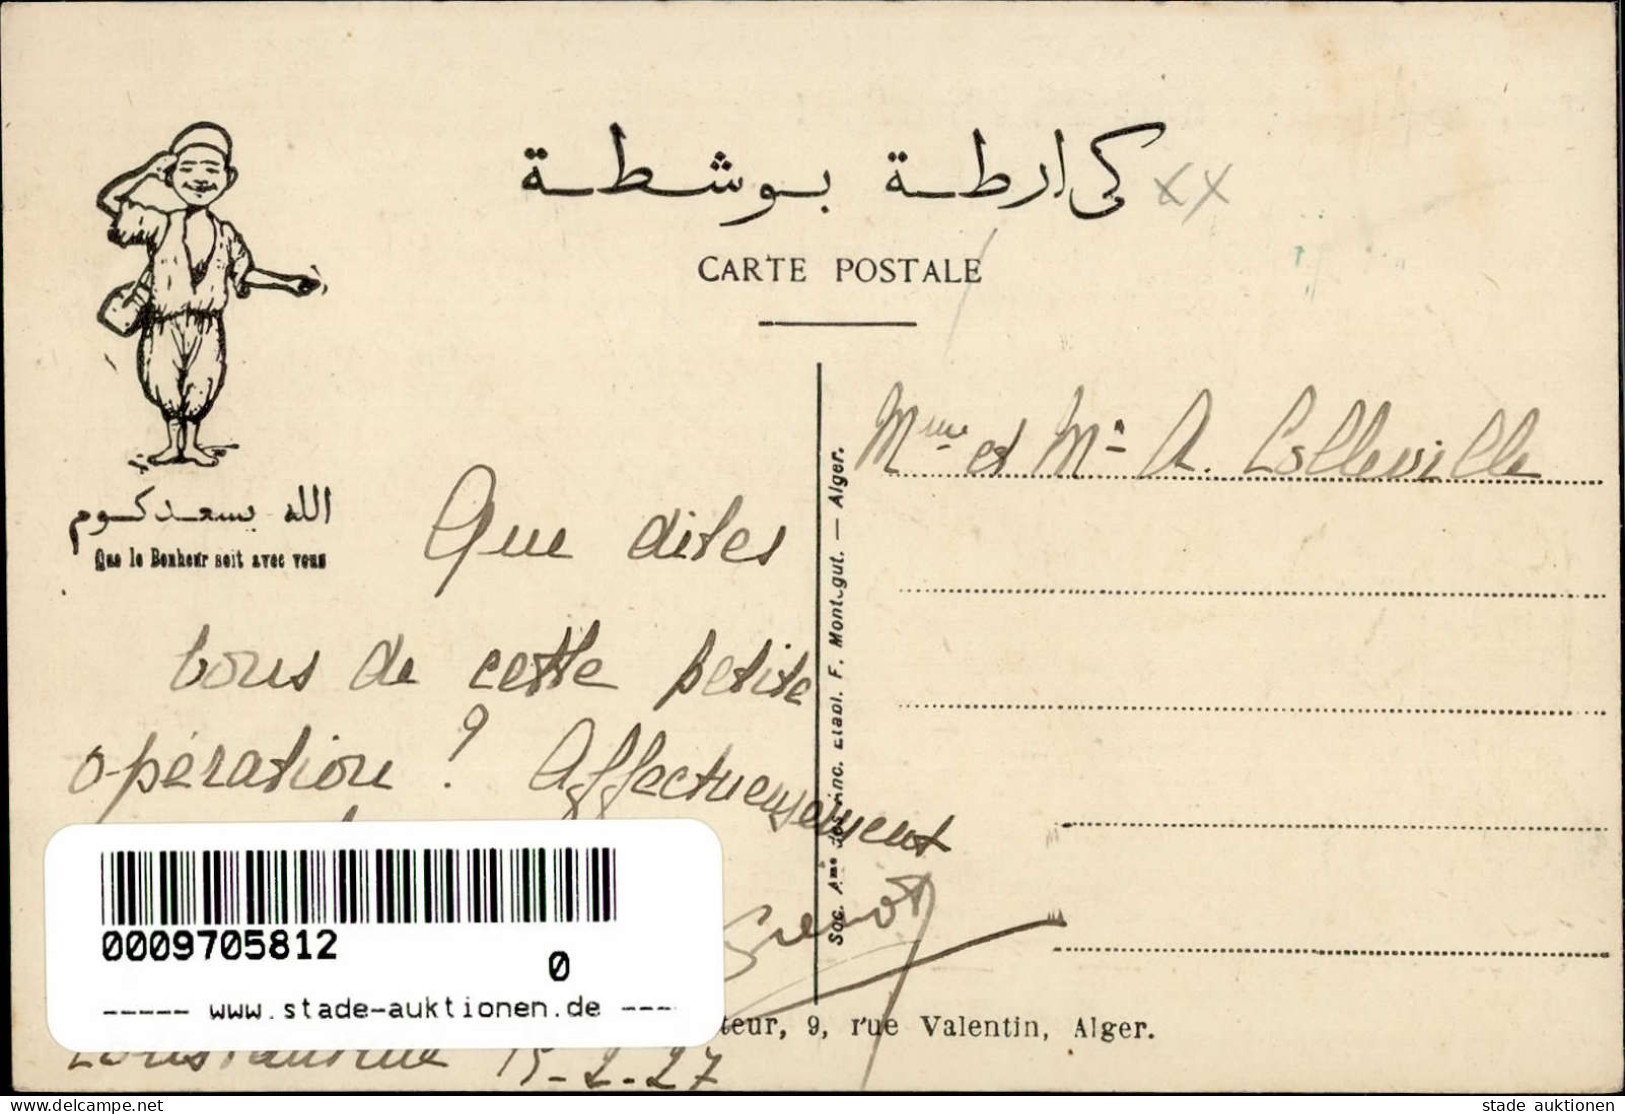 كارطة بوشطة
CARTE POSTALE
الله يسعدكوم
Que le Bonheur soit avec vous
Mme et Mr A. Colleville
Que dites
vous de cette petite
opération ? Affectueusement
Soc. Ame des Anc. Etabl. F. Montégut. — Alger.
0009705812
0
----- www.stade-auktionen.de ----
teur, 9, rue Valentin, Alger.
Constantine 15-2-27
www.delcampe.net
stade auktionen